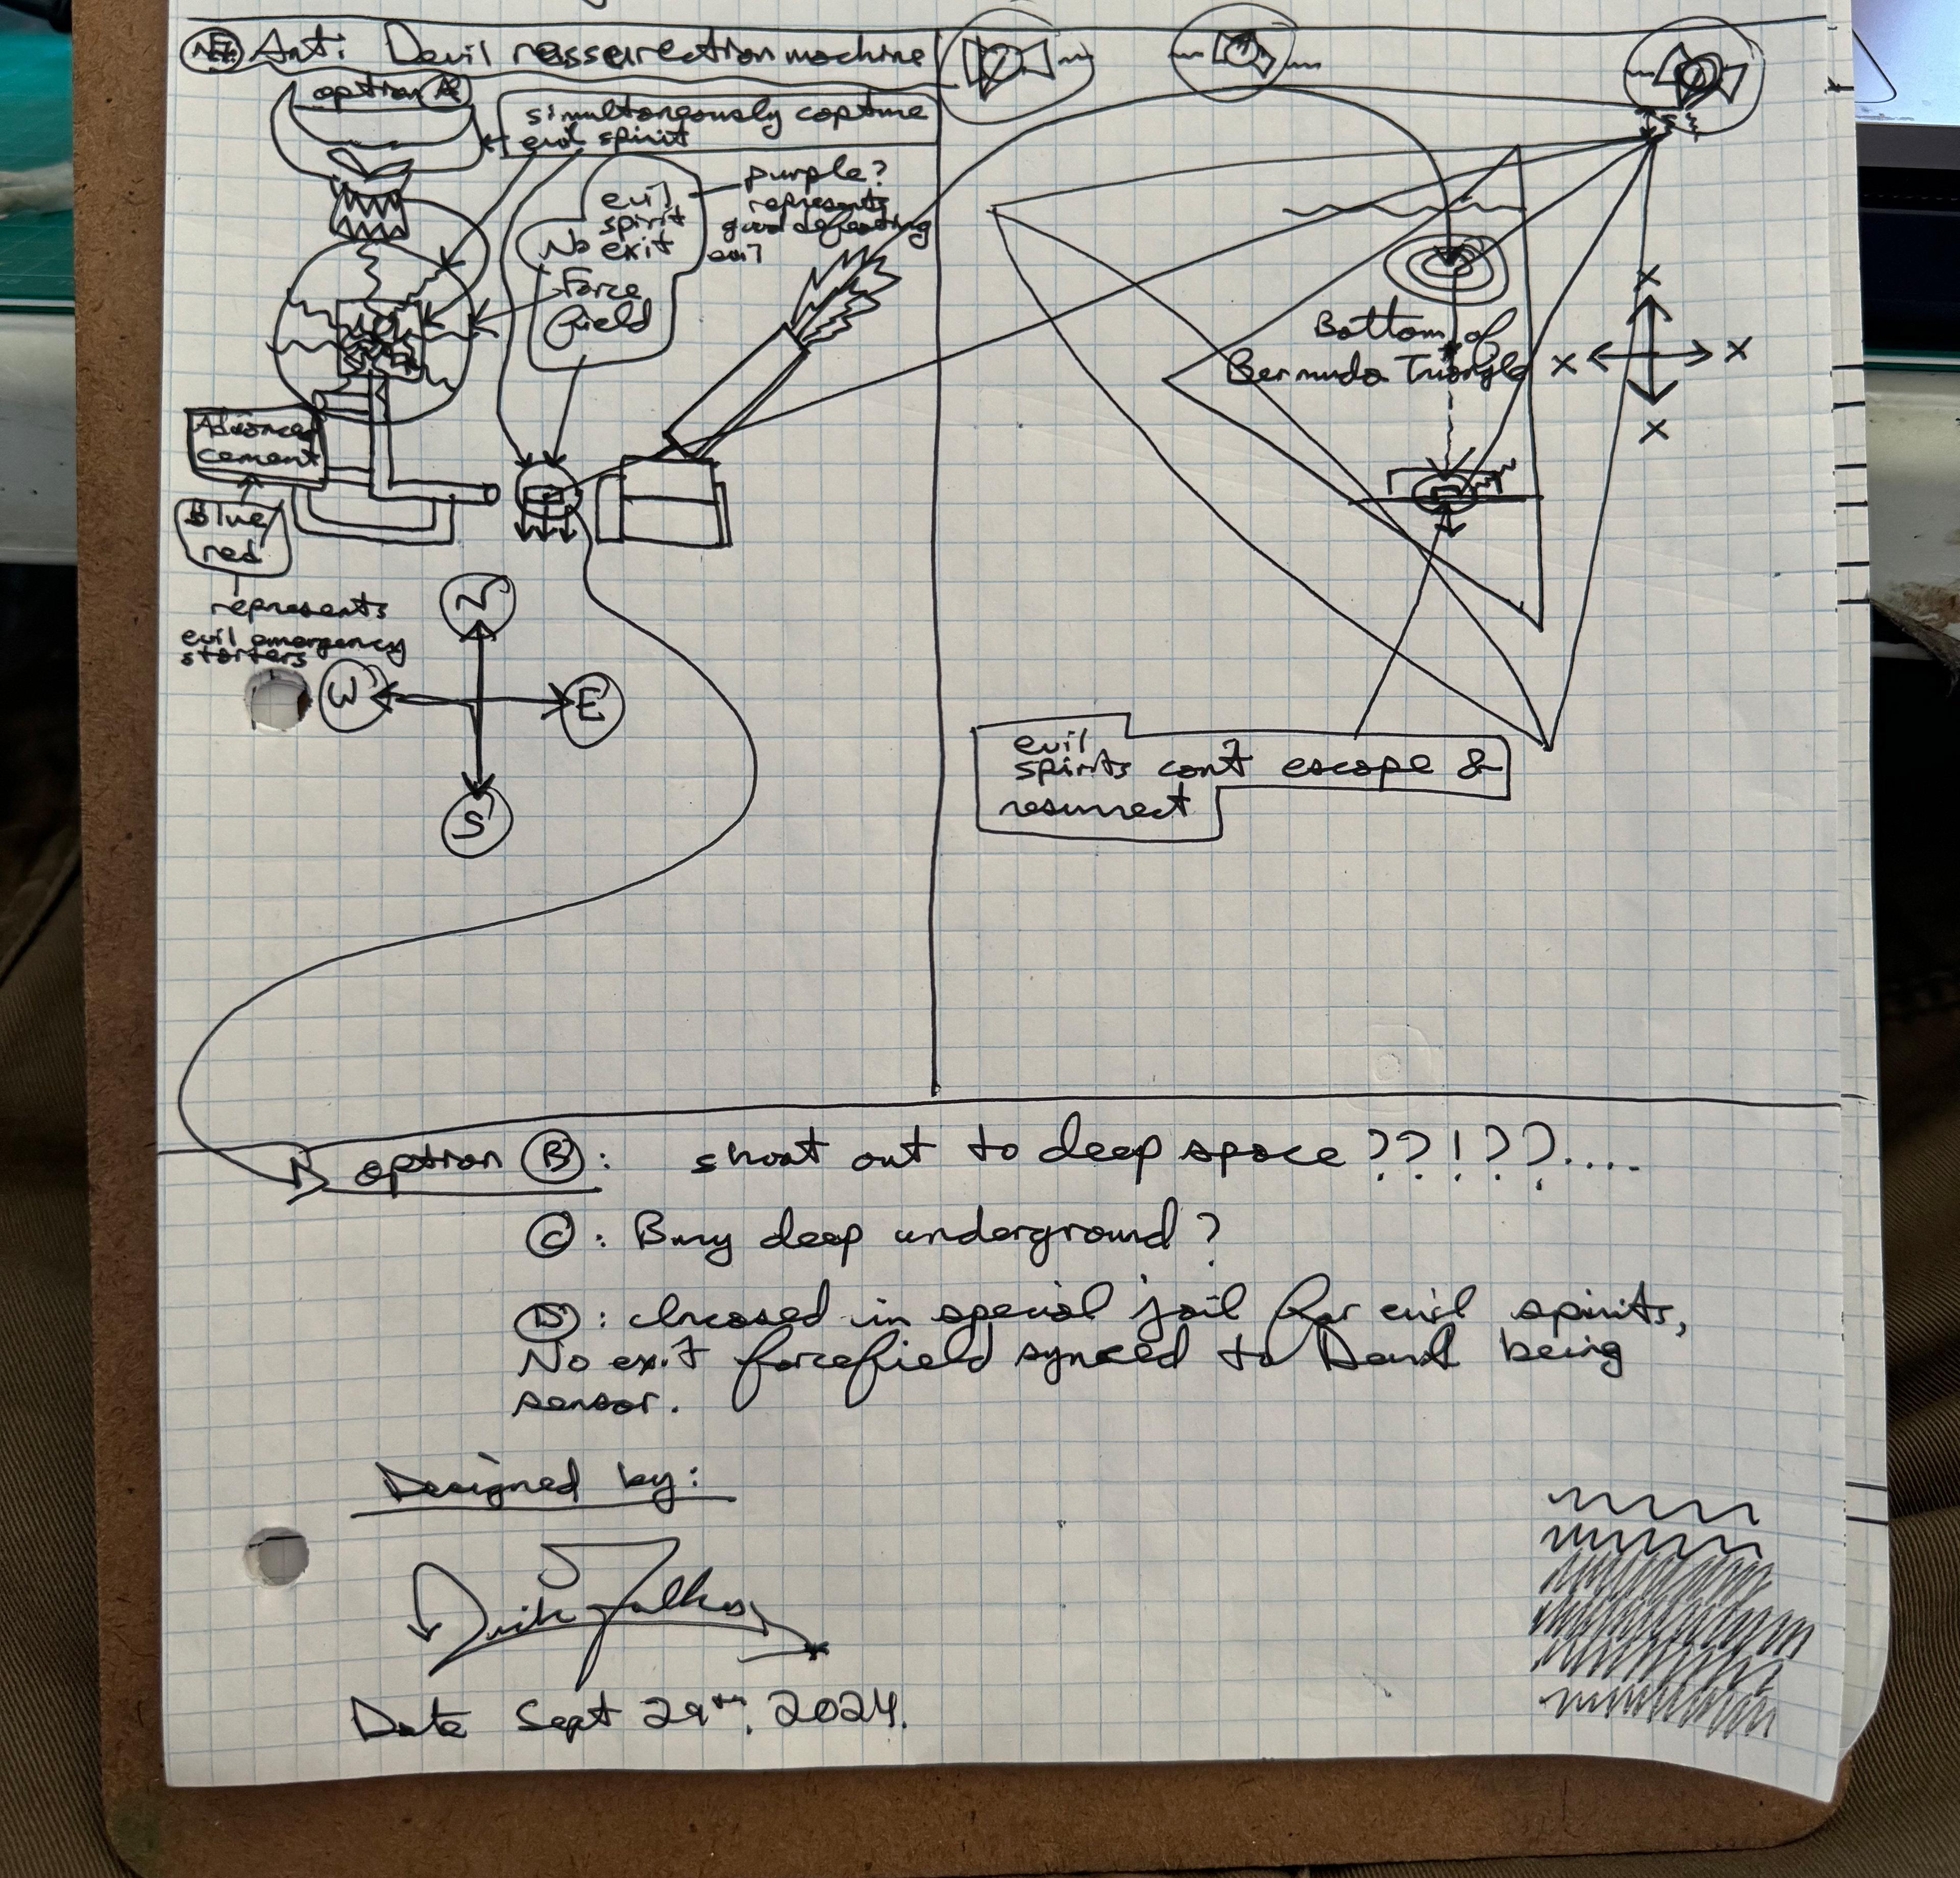 Anti Devil resserection machine
option A
simultaneously capture
evil spirit
evil
spirit
No exit
Force
field
purple?
represents
good defeating
evil
Advanced
cement
Blue/
red
represents
evil emergency
starters
N
W
E
S
Bottom of
Bermuda Triangle
X
X
X
X
evil
spirits can't escape &
resurrect
option B: shoot out to deep space??!??....
C: Bury deep underground?
D: Incased in special jail for evil spirits,
No exit forcefield synced to being
sensor.
Designed by:
Date Sept 29th, 2024.